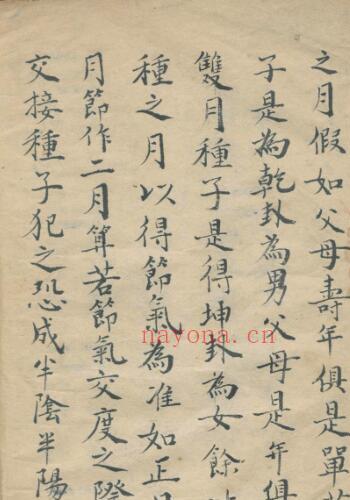 之月假如父母壽年俱是單
子是為乾卦為男父母是年俱
雙月種子是得坤卦為女餘
種之月以得節氣為准如正月
月節作二月算若節氣交度之際
交接種子犯之恐成半陰半陽
nayona.cn